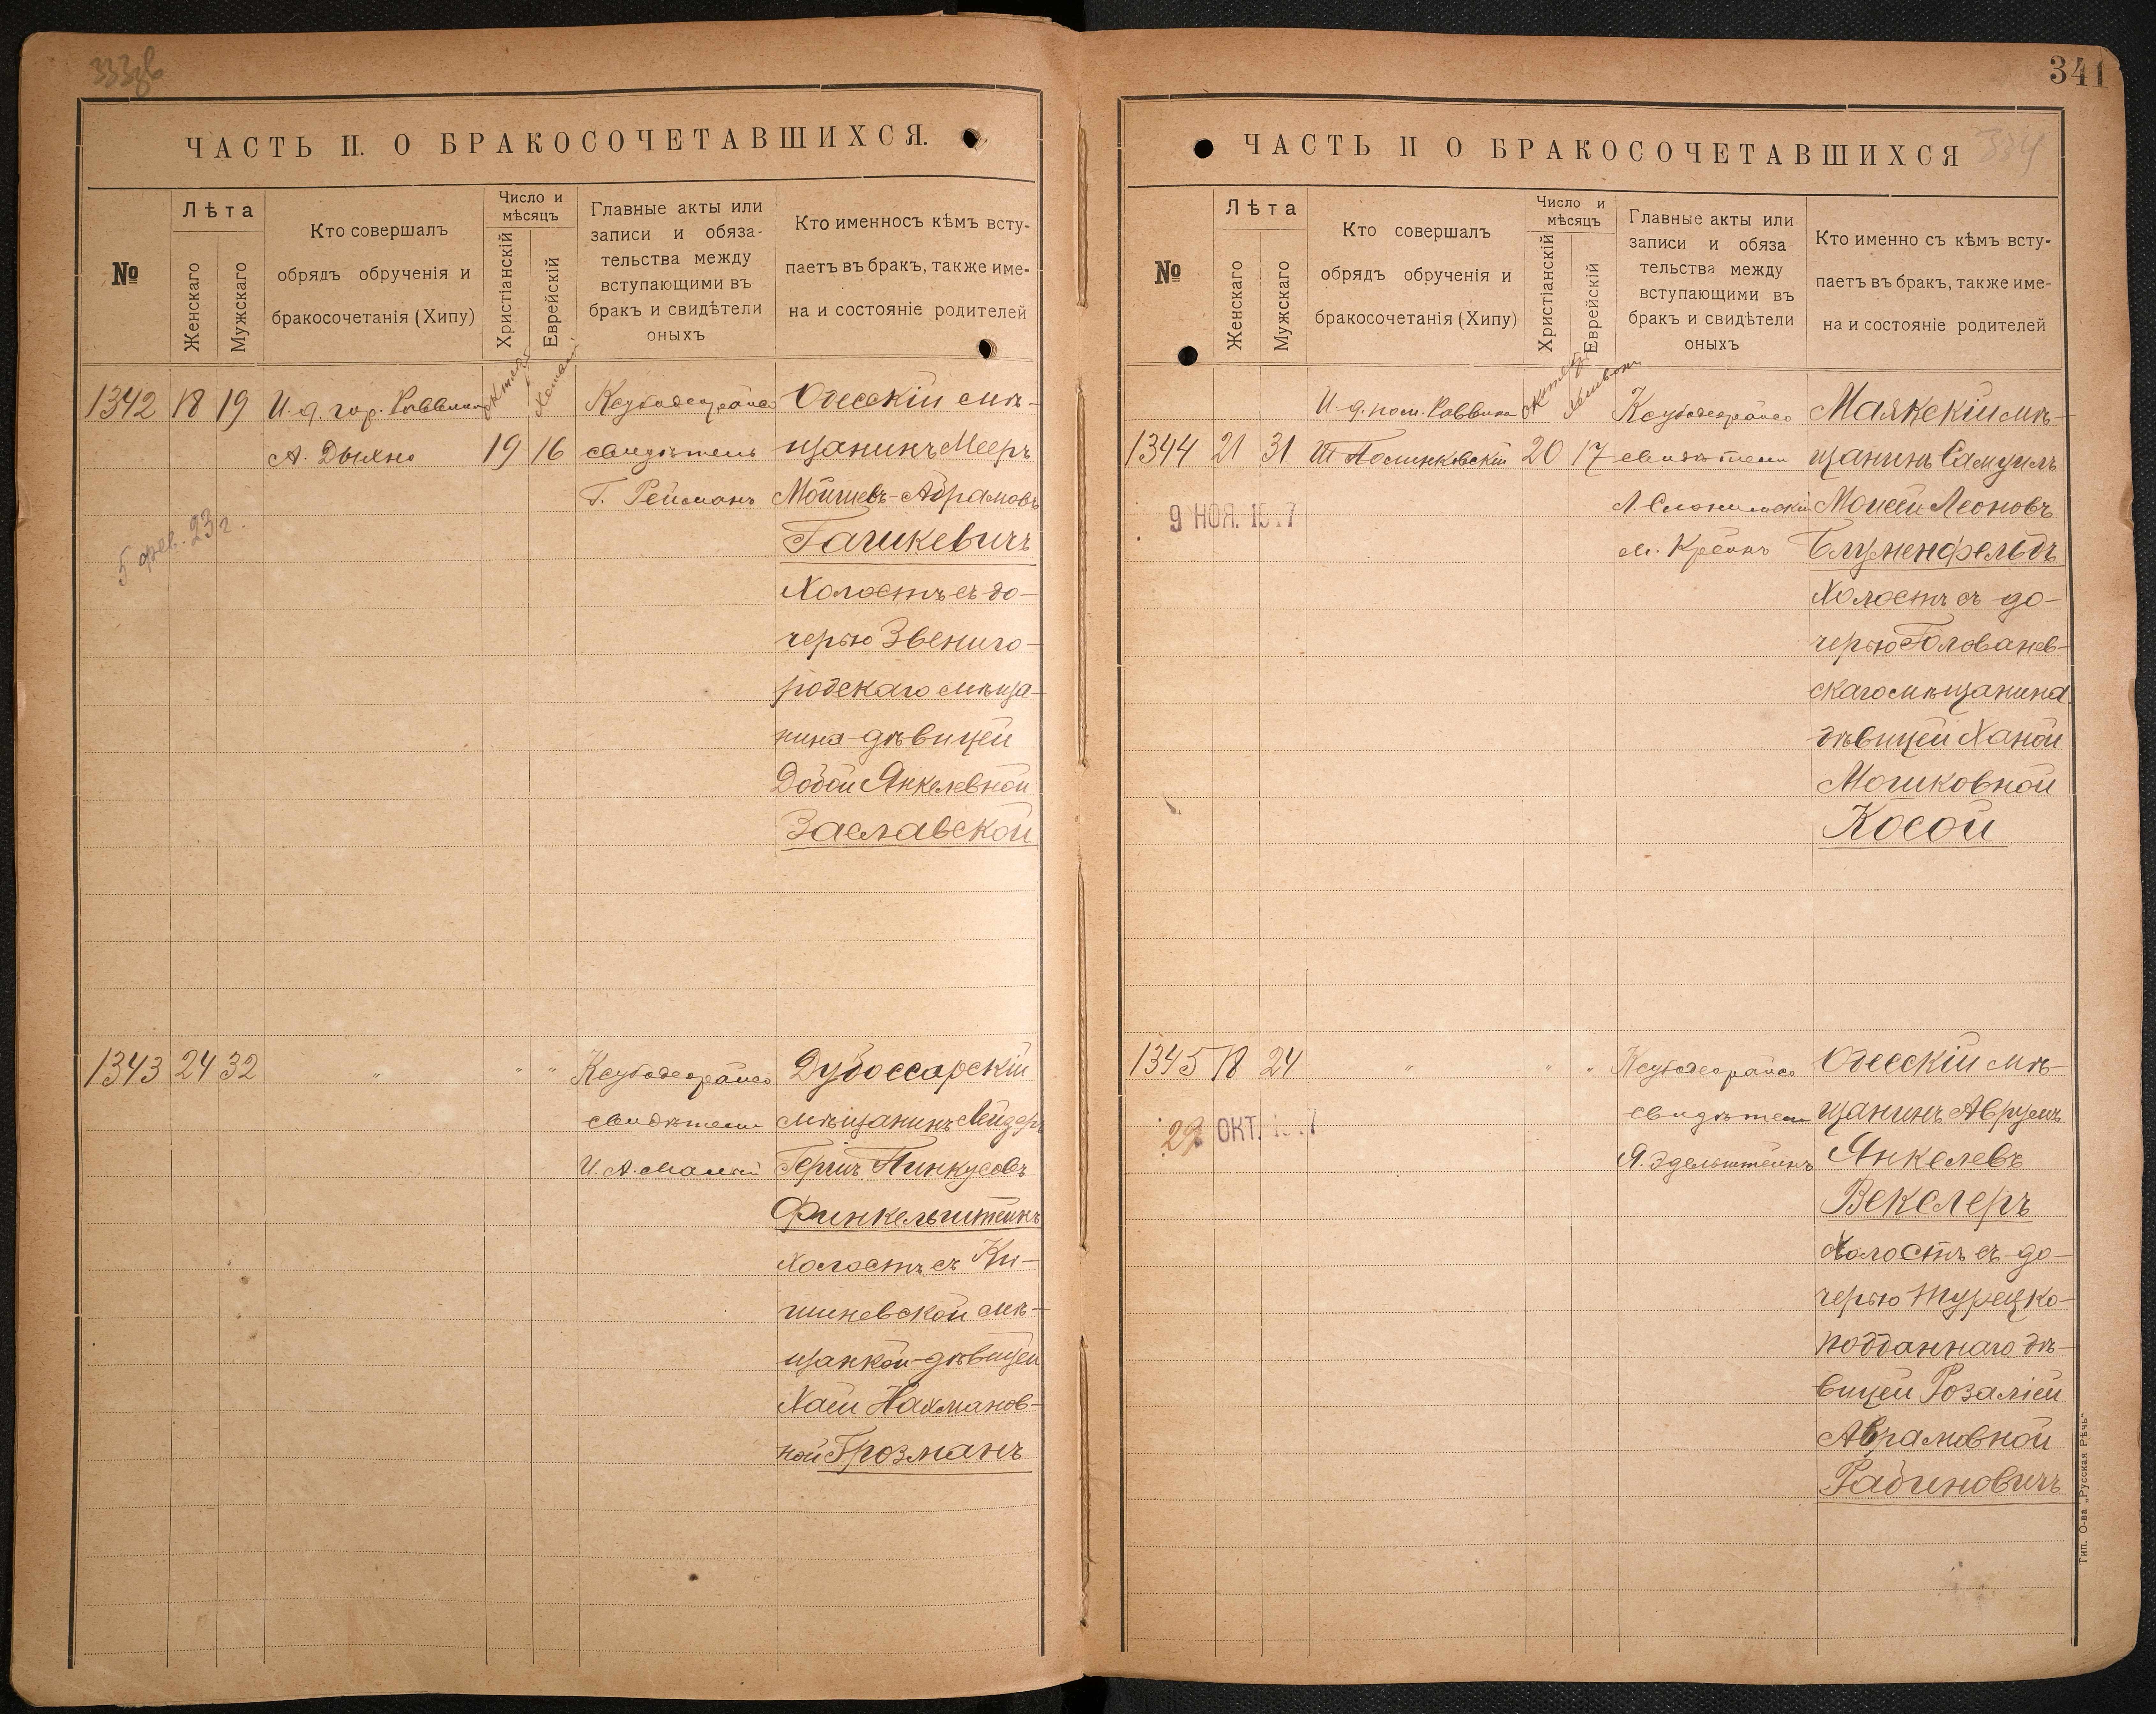 333об
ЧАСТЬ II. О БРАКОСОЧЕТАВШИХСЯ.
№
Лѣта
Женскаго
Мужскаго
Кто совершалъ
обрядъ обрученія и
бракосочетанія (Хипу)
Число и
мѣсяцъ
Христіанскій
Еврейскій
Главные акты или
записи и обяза-
тельства между
вступающими въ
бракъ и свидѣтели
оныхъ
Кто именносъ кѣмъ всту-
паетъ въ бракъ, также име-
на и состояніе родителей
1342 18 19 И. д. гор. Раввина
А. Дыхно
19 16
свидѣтель
Г. Рейсманъ
Одесскій мѣ-
щанинъ Мееръ
Мойшевъ-Абрамовъ
Гашкевичъ
Холостъ съ до-
черью Звениго-
родскаго мѣща-
нина дѣвицей
Добой Янкелевной
Заславской
5 фев. 23 г.
1343 24 32 " " "
свидѣтели
И. А. Малый
Дубоссарскій
мѣщанинъ Лейзеръ
Гершъ Пинкусовъ
Финкельштейнъ
Холостъ съ Ки-
шиневской мѣ-
щанкой-дѣвицей
Хаей Нахманов-
ной Грозманъ
341
334
ЧАСТЬ II О БРАКОСОЧЕТАВШИХСЯ
№
Лѣта
Женскаго
Мужскаго
Кто совершалъ
обрядъ обрученія и
бракосочетанія (Хипу)
Число и
мѣсяцъ
Христіанскій
Еврейскій
Главные акты или
записи и обяза
тельства между
вступающими въ
бракъ и свидѣтели
оныхъ
Кто именно съ кѣмъ всту-
паетъ въ бракъ, также име-
на и состояніе родителей
И. д. пом. Раввина
1344 21 31
20 17
свидѣтели
М. Крейнъ
Маякскій мѣ-
щанинъ Самуилъ
Моисей Леоновъ
Блуменфельдъ
Холостъ съ до-
черью Голованев-
скаго мѣщанина
дѣвицей Ханой
Мошковной
Косой
9 НОЯ.
1345 18 24 " " "
свидѣтели
Я. Эдельштейнъ
Одесскій мѣ-
щанинъ Аврумъ
Янкелевъ
Векслеръ
Холостъ съ до-
черью Турецко-
подданнаго дѣ-
вицей Розаліей
Аврамовной
Рабиновичъ
ОКТ.
Тип. О-ва „Русская Рѣчь"